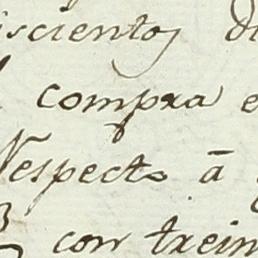 iscientos di
compra e
Respecto â
con trein